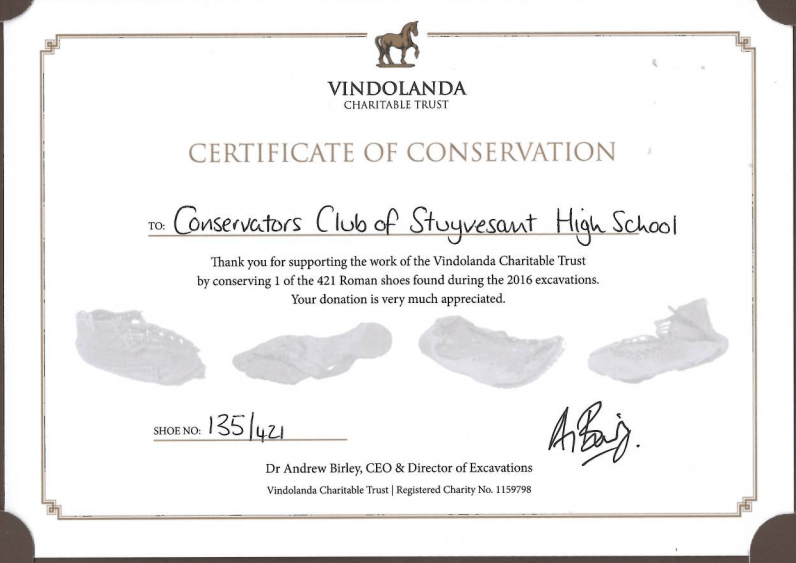 VINDOLANDA
CHARITABLE TRUST
CERTIFICATE OF CONSERVATION
TO: Conservators Club of Stuyvesant High School
Thank you for supporting the work of the Vindolanda Charitable Trust
by conserving 1 of the 421 Roman shoes found during the 2016 excavations.
Your donation is very much appreciated.
SHOE NO: 135/421
Dr Andrew Birley, CEO & Director of Excavations
Vindolanda Charitable Trust | Registered Charity No. 1159798